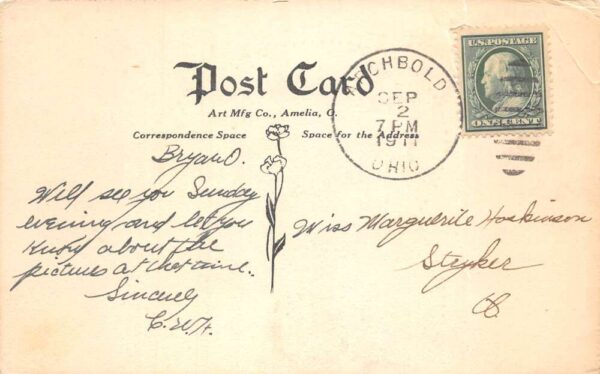 Post Card
Art Mfg Co., Amelia, O.
Correspondence Space
Space for the Address
ARCHBOLD
SEP
2
7 PM
1911
OHIO
U.S. POSTAGE
ONE CENT
Bryan O.
Will see you Sunday
evening and let you
know about the
pictures at that time.
Sincerely
C.W.H.
Miss Marguerite Hoskinson
Stryker
O.